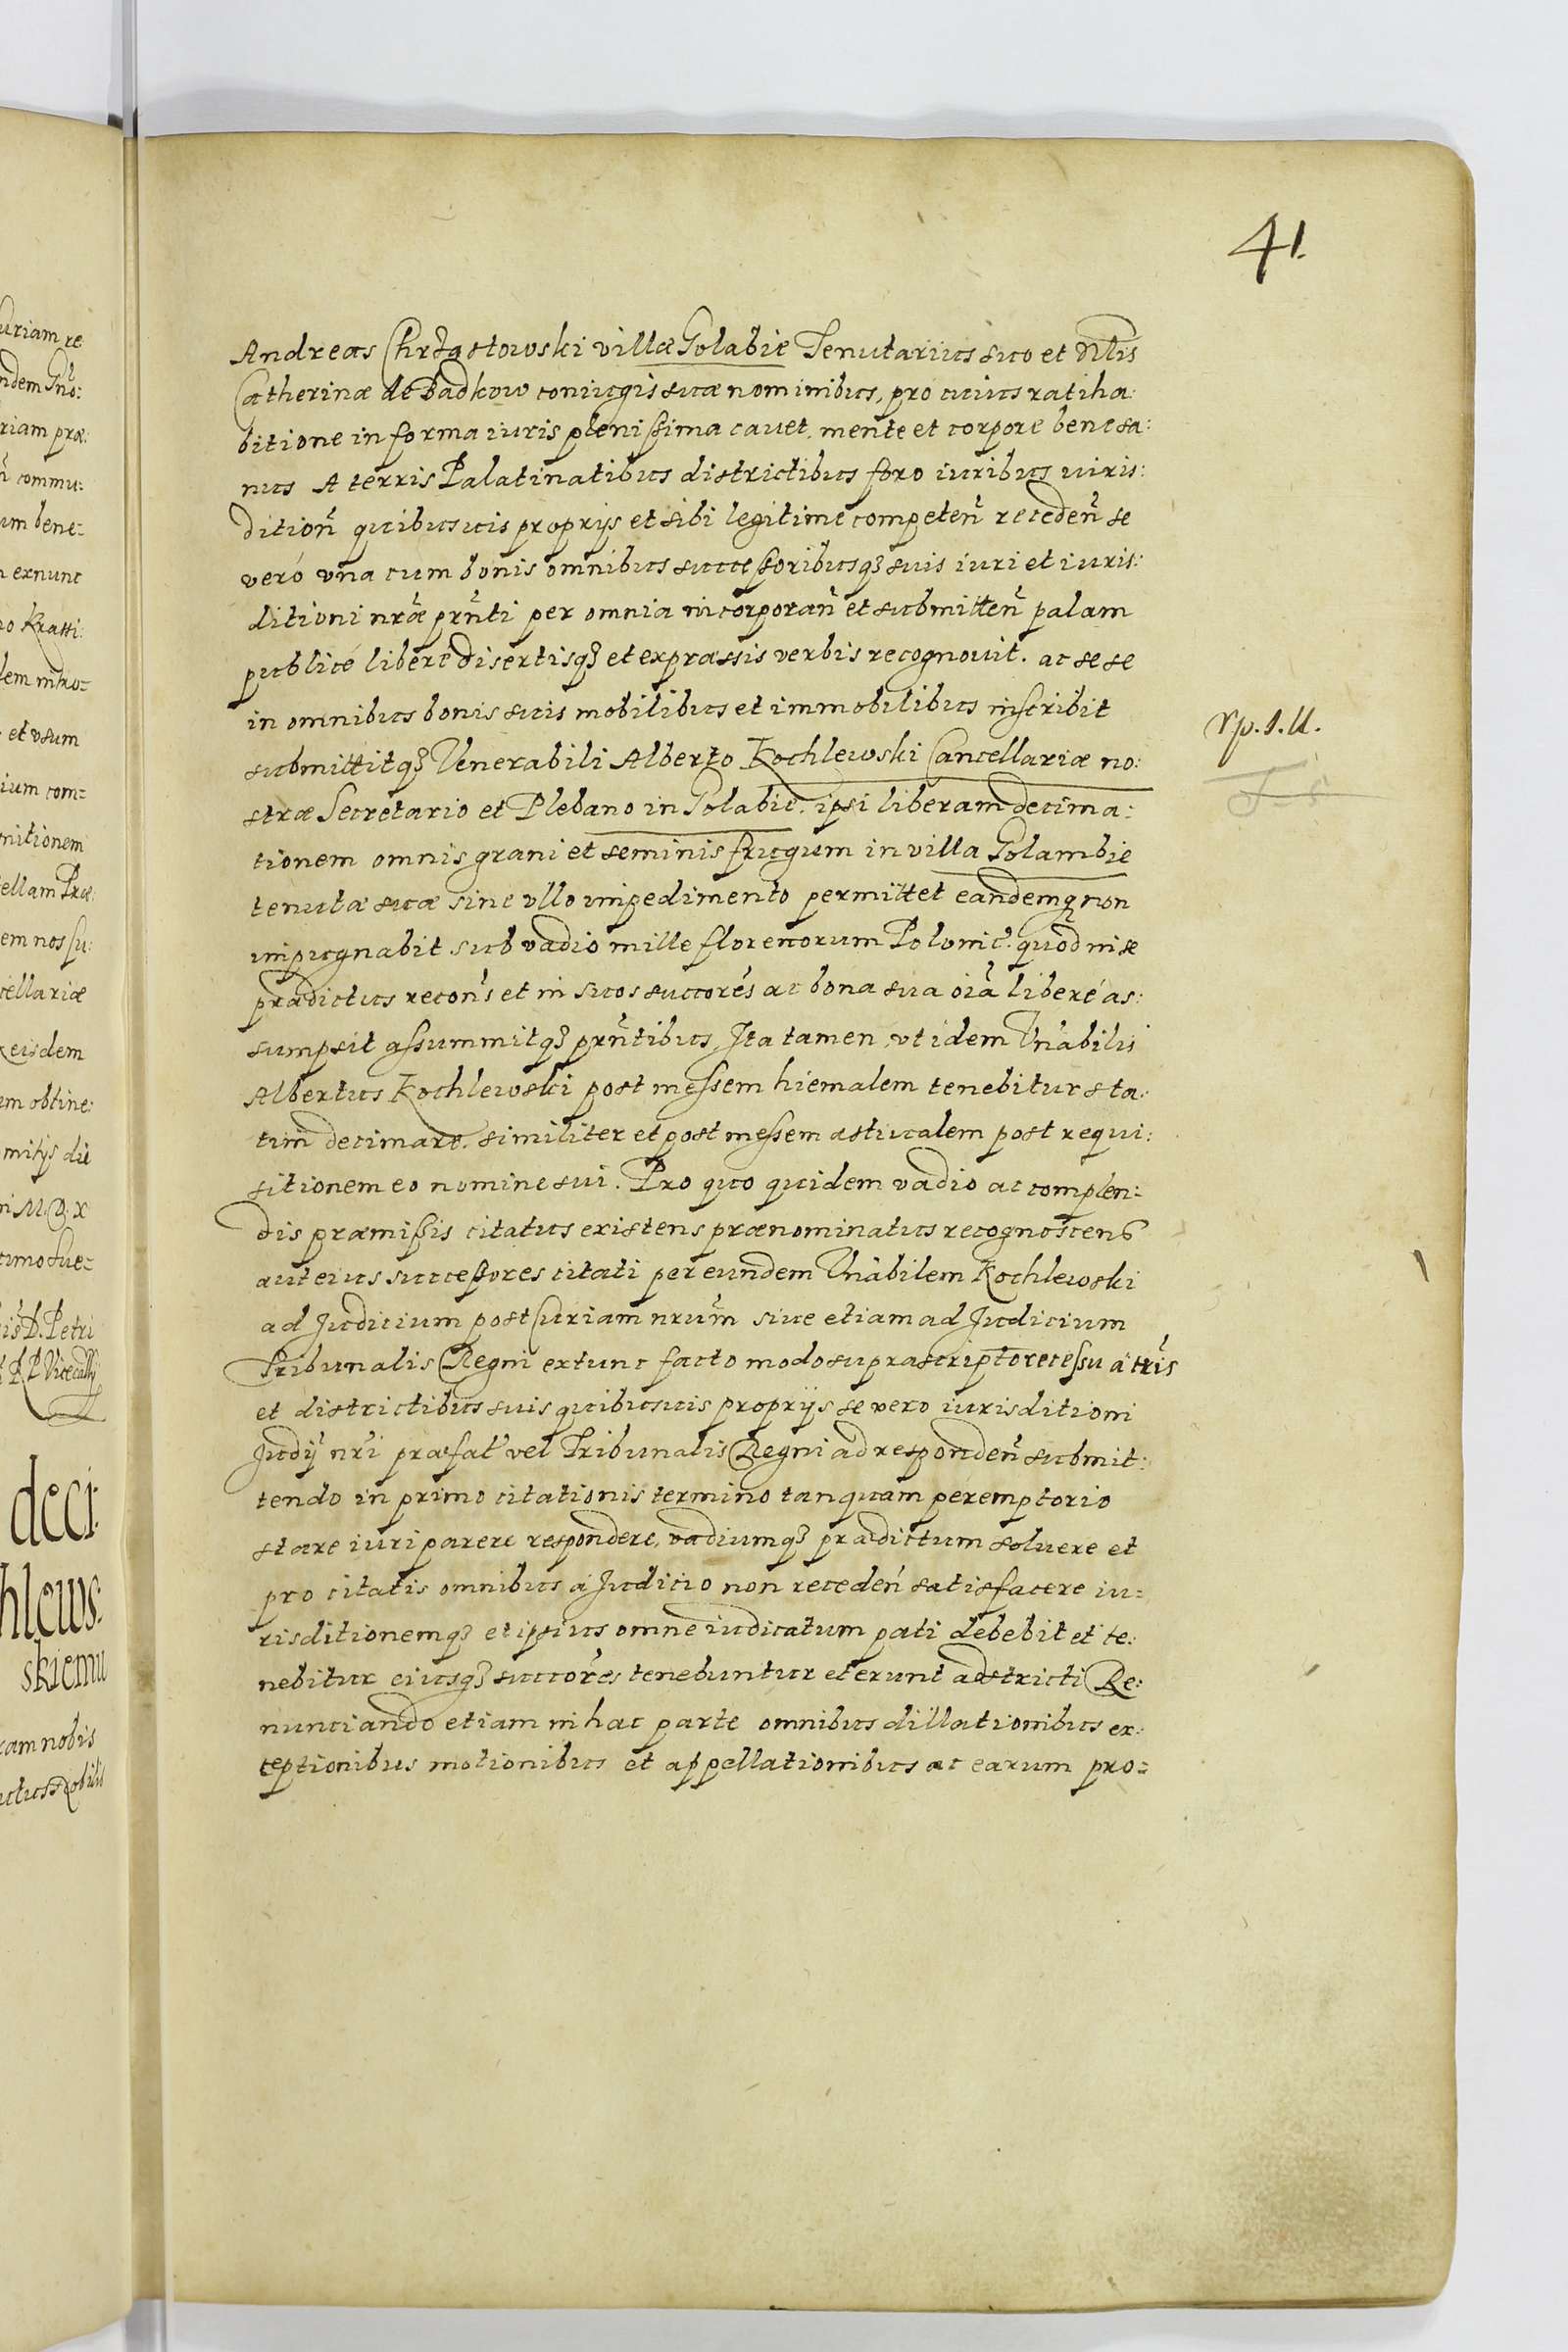 41.
Andreas Chrząstowski villæ Golabie Tenutarius suo et Nblis
Catherinæ de Badkow coniugis suæ nominibus, pro cuius ratiha:
bitione in forma iuris plenißima cauet, mente et corpore bene sa:
nus A terris Palatinatibus districtibus foro iuribus iuris:
dition̄ quibusuis proprijs et sibi legitime competen̄ receden̄ se
veró vna cum bonis omnibus succeßoribusq3 suis iuri et iuris:
ditioni nr̄æ prn̄ti per omnia incorporan̄ et submitten̄ palam
publicé liberé disertisq3 et expræssis verbis recognouit. ac sese
in omnibus bonis suis mobilibus et immobilibus inscribit
submittitq3 Venerabili Alberto Kochlewski Cancellariæ no:
stræ Secretario et Plebano in Golabie. ipsi liberam decima:
tionem omnis grani et seminis frugum in villa Golambie
tenutæ suæ sine vllo impedimento permittet eandemq3 non
impugnabit sub vadio mille florenorum Polonic. quod in se
prædictus recon̄s et in suos succorēs ac bona sua oīa liberé as:
sumpsit assummitq3 prn̄tibus, Ita tamen, vt idem Vnābilis
Albertus Kochlewski post messem hiemalem tenebitur sta:
tim decimare. similiter et post messem æstiualem post requi:
sitionem eo nomine sui. Pro quo quidem vadio ac complen:
dis præmißis citatus existens prænominatus recognoscens
aut eius succeßores citati per eundem Vnābilem Kochlewski
ad Judicium post Curiam nrum̄ siue etiam ad Judicium
Tribunalis Regni extunc facto modo suprascripto recessu á trīs
et districtibus suis quibusuis proprijs se vero iurisditioni
Judij nrī præfat̄ vel Tribunalis Regni ad responden̄ submit:
tendo in primo citationis termino tanquam peremptorio
stare iuri parere respondere, vadiumq3 prædictum soluere et
pro citatis omnibus á Judicio non receden̄ satisfacere iu:
risditionemq3 et ipsius omne iudicatum pati debebit et te:
nebitur eiusq3 succorēs tenebuntur et erunt adstricti Re:
nunciando etiam in hac parte omnibus dillationibus ex:
ceptionibus motionibus et appellationibus ac earum pro: